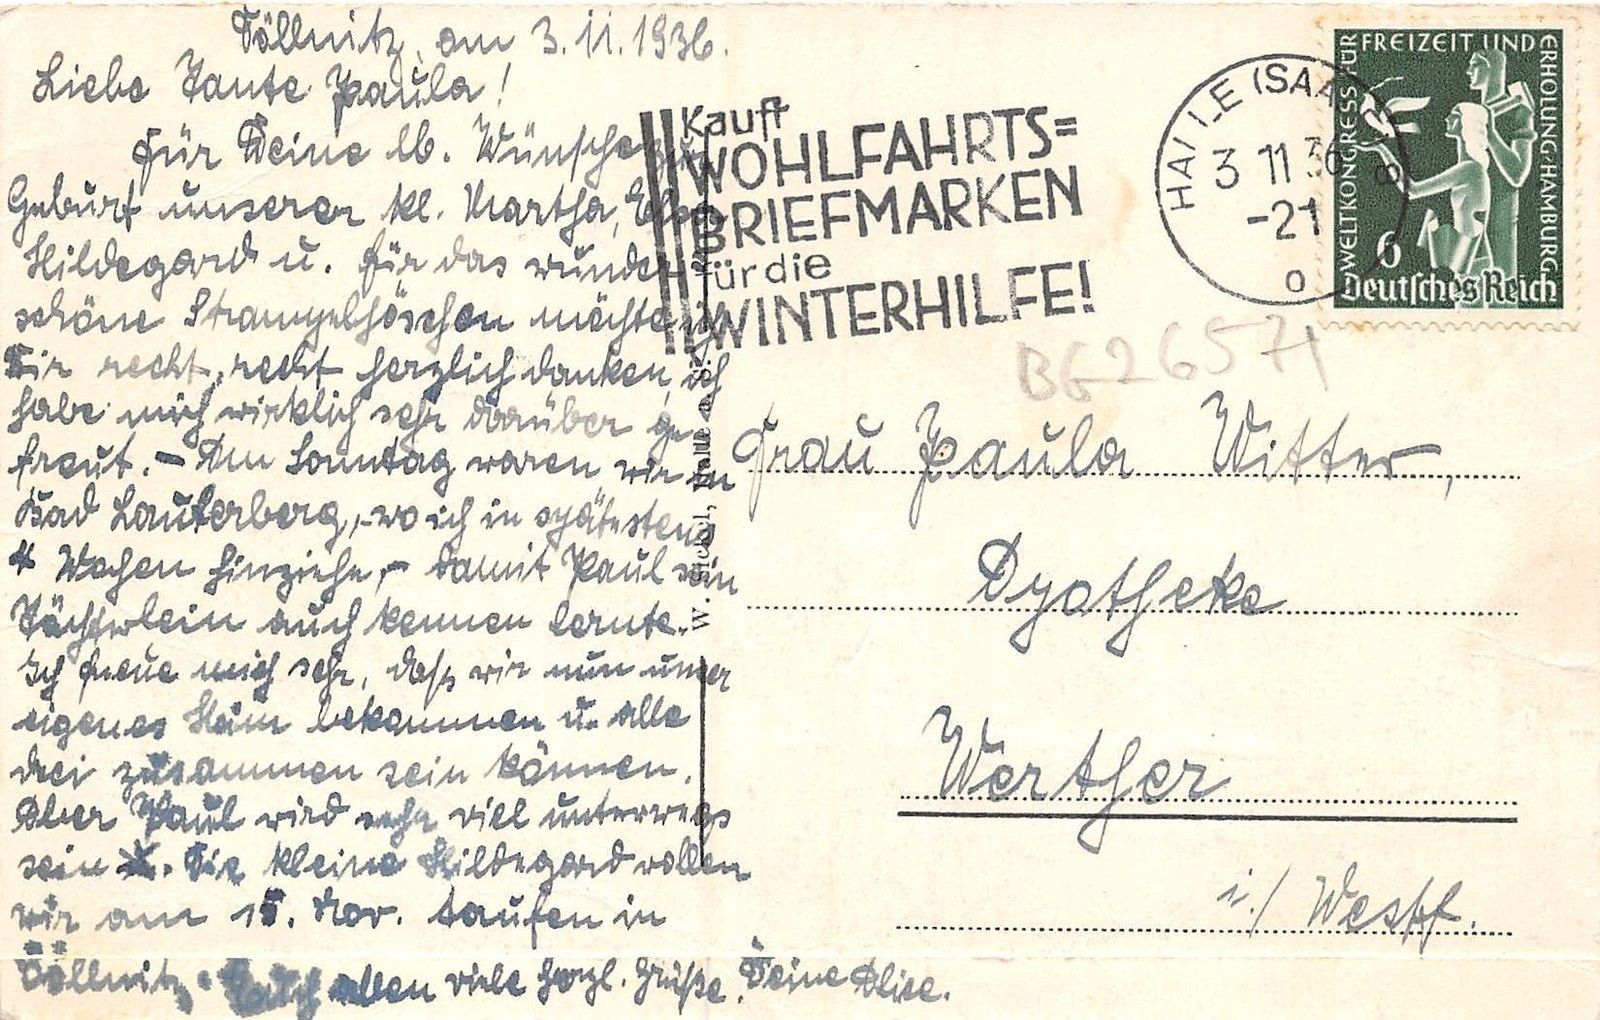 Döllnitz, am 3.11.1936.
Liebe Tante Paula!
Für Deine lb. Wünsche zur
Geburt unserer kl. Martha, Elsa
Hildegard u. für das wunder
schöne Strampelhöschen möchte ich
Dir recht, recht herzlich danken, ich
habe mich wirklich sehr darüber ge
freut. – Am Sonntag waren wir in
Bad Lauterberg, – wo ich in spätestens
4 Wochen hinziehe, – damit Paul sein
Töchterlein auch kennen lernte.
Ich freue mich sehr, daß wir nun unser
eigenes Heim bekommen u. alle
drei zusammen sein können.
Aber Paul wird sehr viel unterwegs
sein. Die kleine Hildegard wollen
wir am 15. Nov. taufen in
Döllnitz. Euch allen viele herzl. Grüße. Deine Alice.
Kauft
WOHLFAHRTS=
BRIEFMARKEN
für die
WINTERHILFE!
HALLE (SAALE)
3 11 36
-21
o
WELTKONGRESS FÜR FREIZEIT UND ERHOLUNG·HAMBURG
6
Deutsches Reich
B626571
W. Stickel, Halle a. S.
Frau Paula Witter,
Apotheke
Werther
i./ Westf.